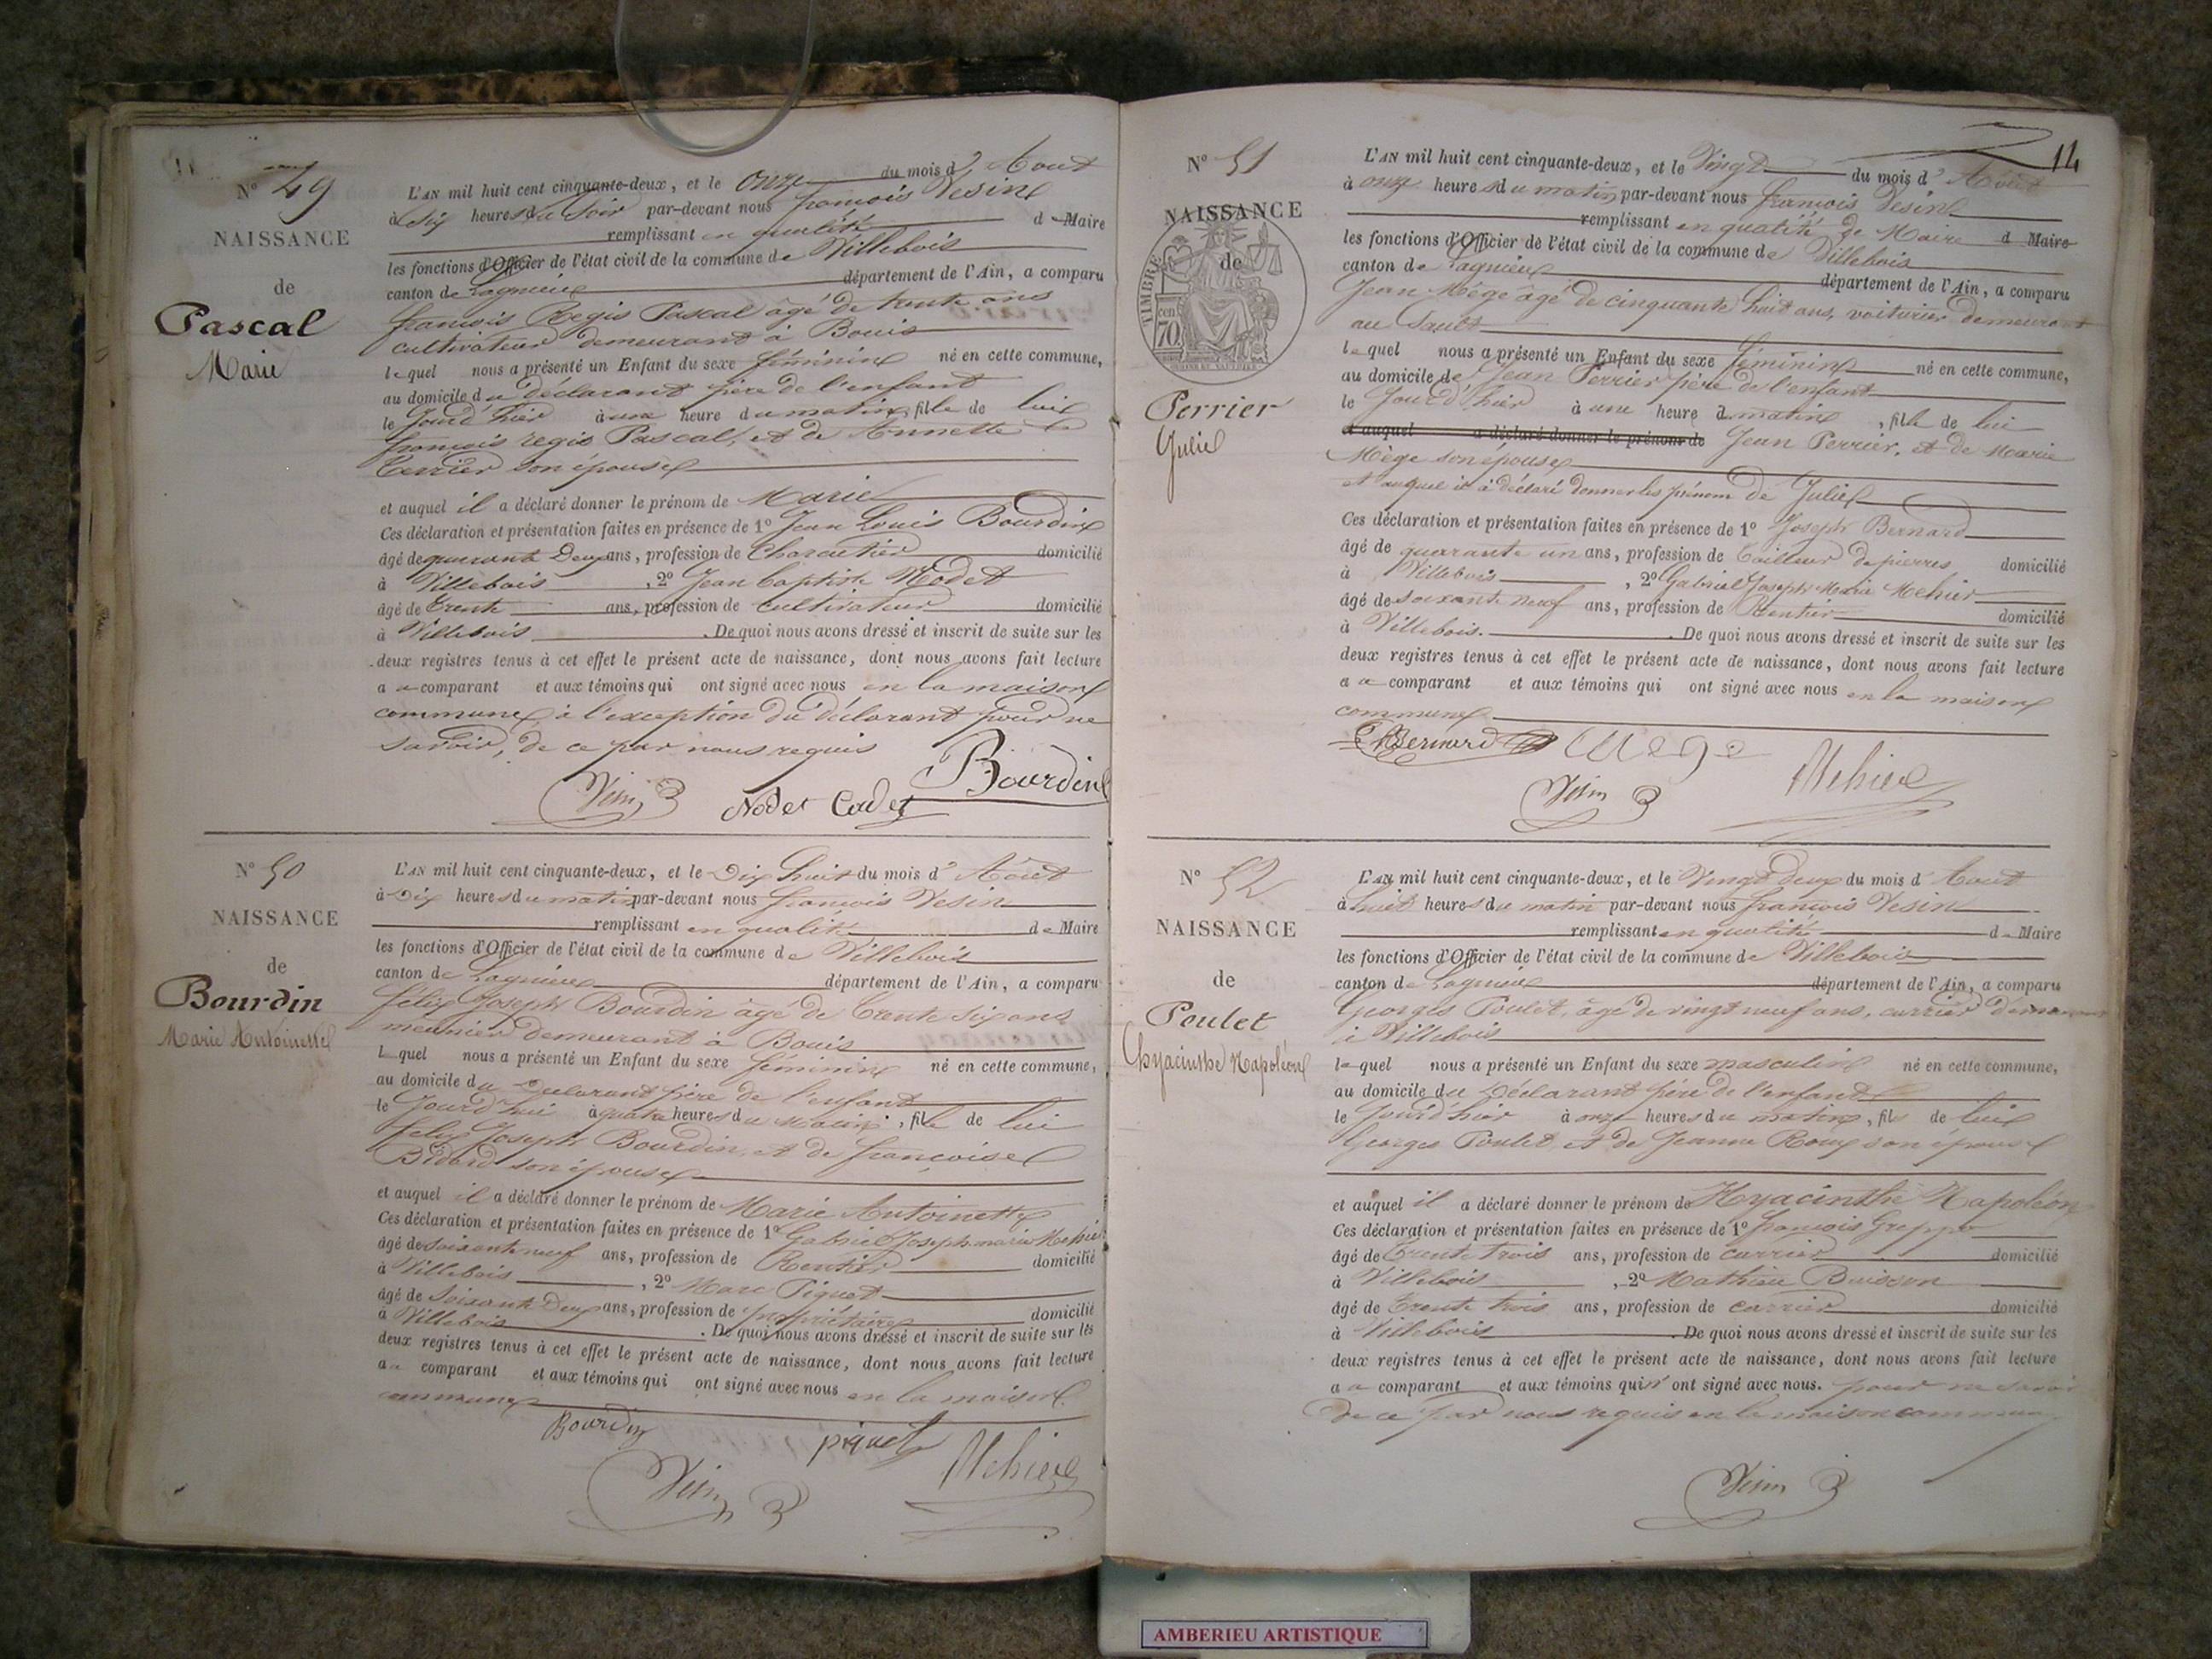 N° 49
NAISSANCE
de
Pascal
Marie
L'AN mil huit cent cinquante-deux, et le onze du mois d' Aout
à Six heures du Soir par-devant nous françois Vesin
remplissant en qualité de Maire
les fonctions d'Officier de l'état civil de la commune de Villebois
canton de Lagnieu département de l'Ain, a comparu
françois Regis Pascal âgé de trente ans
cultivateur demeurant à Bouis
lequel nous a présenté un Enfant du sexe féminin né en cette commune,
au domicile du déclarant père de l'enfant
le Jourd'hier à une heure du matin, fille de lui
françois regis Pascal, et de Annette
Terrier son épouse
et auquel il a déclaré donner le prénom de Marie
Ces déclaration et présentation faites en présence de 1° Jean Louis Bourdin
âgé de quarante Deux ans, profession de Charcutier domicilié
à Villebois, 2° Jean Baptiste Nodet
âgé de Trente ans, profession de cultivateur domicilié
à Villebois. De quoi nous avons dressé et inscrit de suite sur les
deux registres tenus à cet effet le présent acte de naissance, dont nous avons fait lecture
au comparant et aux témoins qui ont signé avec nous en la maison
commune à l'exception du déclarant pour ne
savoir, de ce par nous requis
Bourdin
Vesin Nodet Cadet
N° 50
NAISSANCE
de
Bourdin
Marie Antoinette
L'AN mil huit cent cinquante-deux, et le Dix huit du mois d' Août
à Dix heures du matin par-devant nous françois Vesin
remplissant en qualité de Maire
les fonctions d'Officier de l'état civil de la commune de Villebois
canton de Lagnieu département de l'Ain, a comparu
félix Joseph Bourdin âgé de Trente Six ans
meunier demeurant à Bouis
lequel nous a présenté un Enfant du sexe féminin né en cette commune,
au domicile du Déclarant père de l'enfant
le Jourd'hui à quatre heures du matin, fille de lui
félix Joseph Bourdin, et de françoise
Bidard son épouse
et auquel il a déclaré donner le prénom de Marie Antoinette
Ces déclaration et présentation faites en présence de 1° Gabriel Joseph marie Mehier
âgé de soixante neuf ans, profession de Rentier domicilié
à Villebois, 2° Marc Piquet
âgé de Soixante Deux ans, profession de propriétaire domicilié
à Villebois. De quoi nous avons dressé et inscrit de suite sur les
deux registres tenus à cet effet le présent acte de naissance, dont nous avons fait lecture
au comparant et aux témoins qui ont signé avec nous en la maison
commune
Bourdin piquet Mehier
Vesin
14
N° 51
NAISSANCE
de
TIMBRE
70 cen
Perrier
Julie
L'AN mil huit cent cinquante-deux, et le Vingt du mois d' Août
à onze heures du matin par-devant nous françois Vesin
remplissant en qualité de Maire d Maire
les fonctions d'Officier de l'état civil de la commune de Villebois
canton de Lagnieu département de l'Ain, a comparu
Jean Mège âgé de cinquante huit ans, voiturier demeurant
au Sault
lequel nous a présenté un Enfant du sexe féminin né en cette commune,
au domicile de Jean Perrier père de l'enfant
le Jourd'hier à une heure du matin, fille de lui
et auquel a déclaré donner le prénom de Jean Perrier, et de Marie
Mège son épouse
et auquel il a déclaré donner les prénom de Julie
Ces déclaration et présentation faites en présence de 1° Joseph Bernard
âgé de quarante un ans, profession de Tailleur de pierres domicilié
à Villebois, 2° Gabriel Joseph Marie Mehier
âgé de soixante neuf ans, profession de Rentier domicilié
à Villebois. De quoi nous avons dressé et inscrit de suite sur les
deux registres tenus à cet effet le présent acte de naissance, dont nous avons fait lecture
au comparant et aux témoins qui ont signé avec nous en la maison
commune
Bernard Mege Mehier
Vesin
N° 52
NAISSANCE
de
Poulet
hyacinthe Napoléon
L'AN mil huit cent cinquante-deux, et le Vingt deux du mois d' Aout
à huit heures du matin par-devant nous françois Vesin
remplissant en qualité d Maire
les fonctions d'Officier de l'état civil de la commune de Villebois
canton de Lagnieu département de l'Ain, a comparu
Georges Poulet, âgé de vingt neuf ans, carrier demeurant
à Villebois
lequel nous a présenté un Enfant du sexe masculin né en cette commune,
au domicile du Déclarant père de l'enfant
le Jourd'hier à onze heures du matin, fils de lui
Georges Poulet et de Jeanne Roux son épouse
et auquel il a déclaré donner le prénom de Hyacinthe Napoléon
Ces déclaration et présentation faites en présence de 1° françois Greppo
âgé de Trente trois ans, profession de carrier domicilié
à Villebois, 2° Mathieu Buisson
âgé de Trente trois ans, profession de carrier domicilié
à Villebois. De quoi nous avons dressé et inscrit de suite sur les
deux registres tenus à cet effet le présent acte de naissance, dont nous avons fait lecture
au comparant et aux témoins qui n'ont signé avec nous. pour ne savoir
de ce par nous requis en la maison commune
Vesin
AMBERIEU ARTISTIQUE